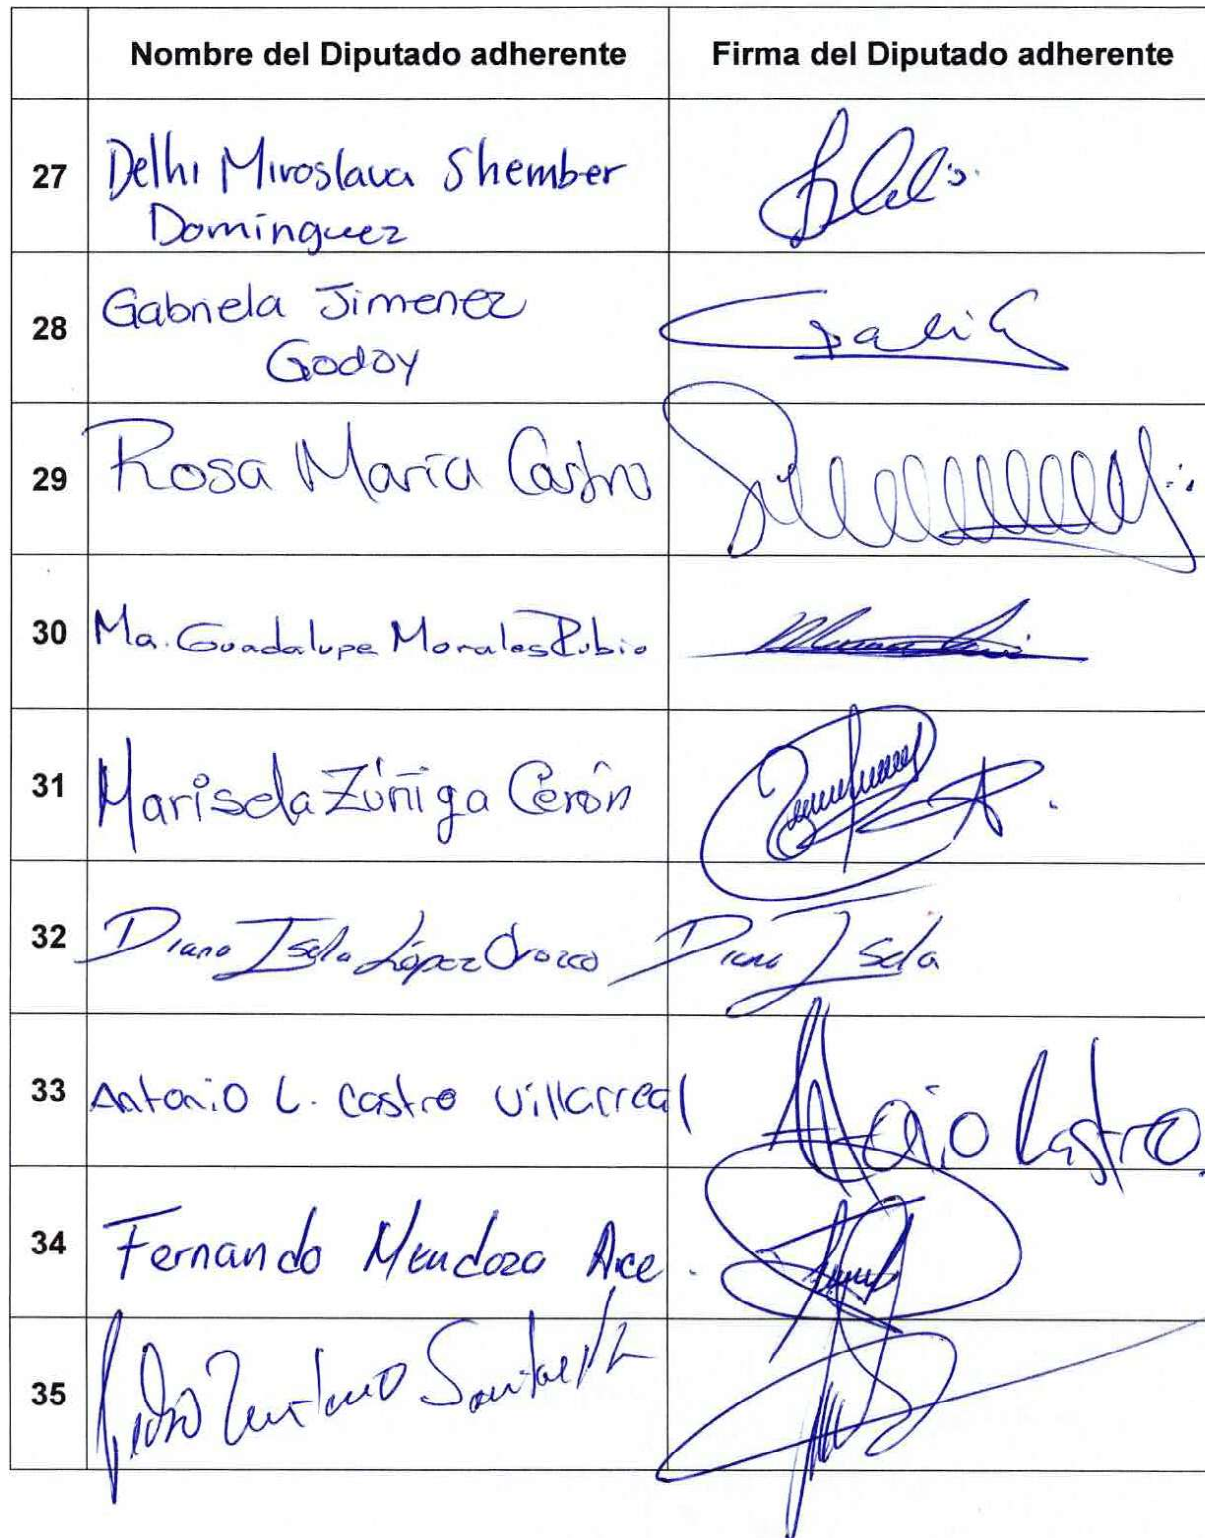 Nombre del Diputado adherente Firma del Diputado adherente
27 Delhi Miroslava Shember
Domínguez
28 Gabriela Jimenez
Godoy
29 Rosa María Castro
30 Ma. Guadalupe Morales Rubio
31 Marisela Zúñiga Cerón
32 Diana Isela López Orozco Diana Isela
33 Antonio L. Castro Villarreal Castro
34 Fernando Mendoza Arce.
35 Pedro